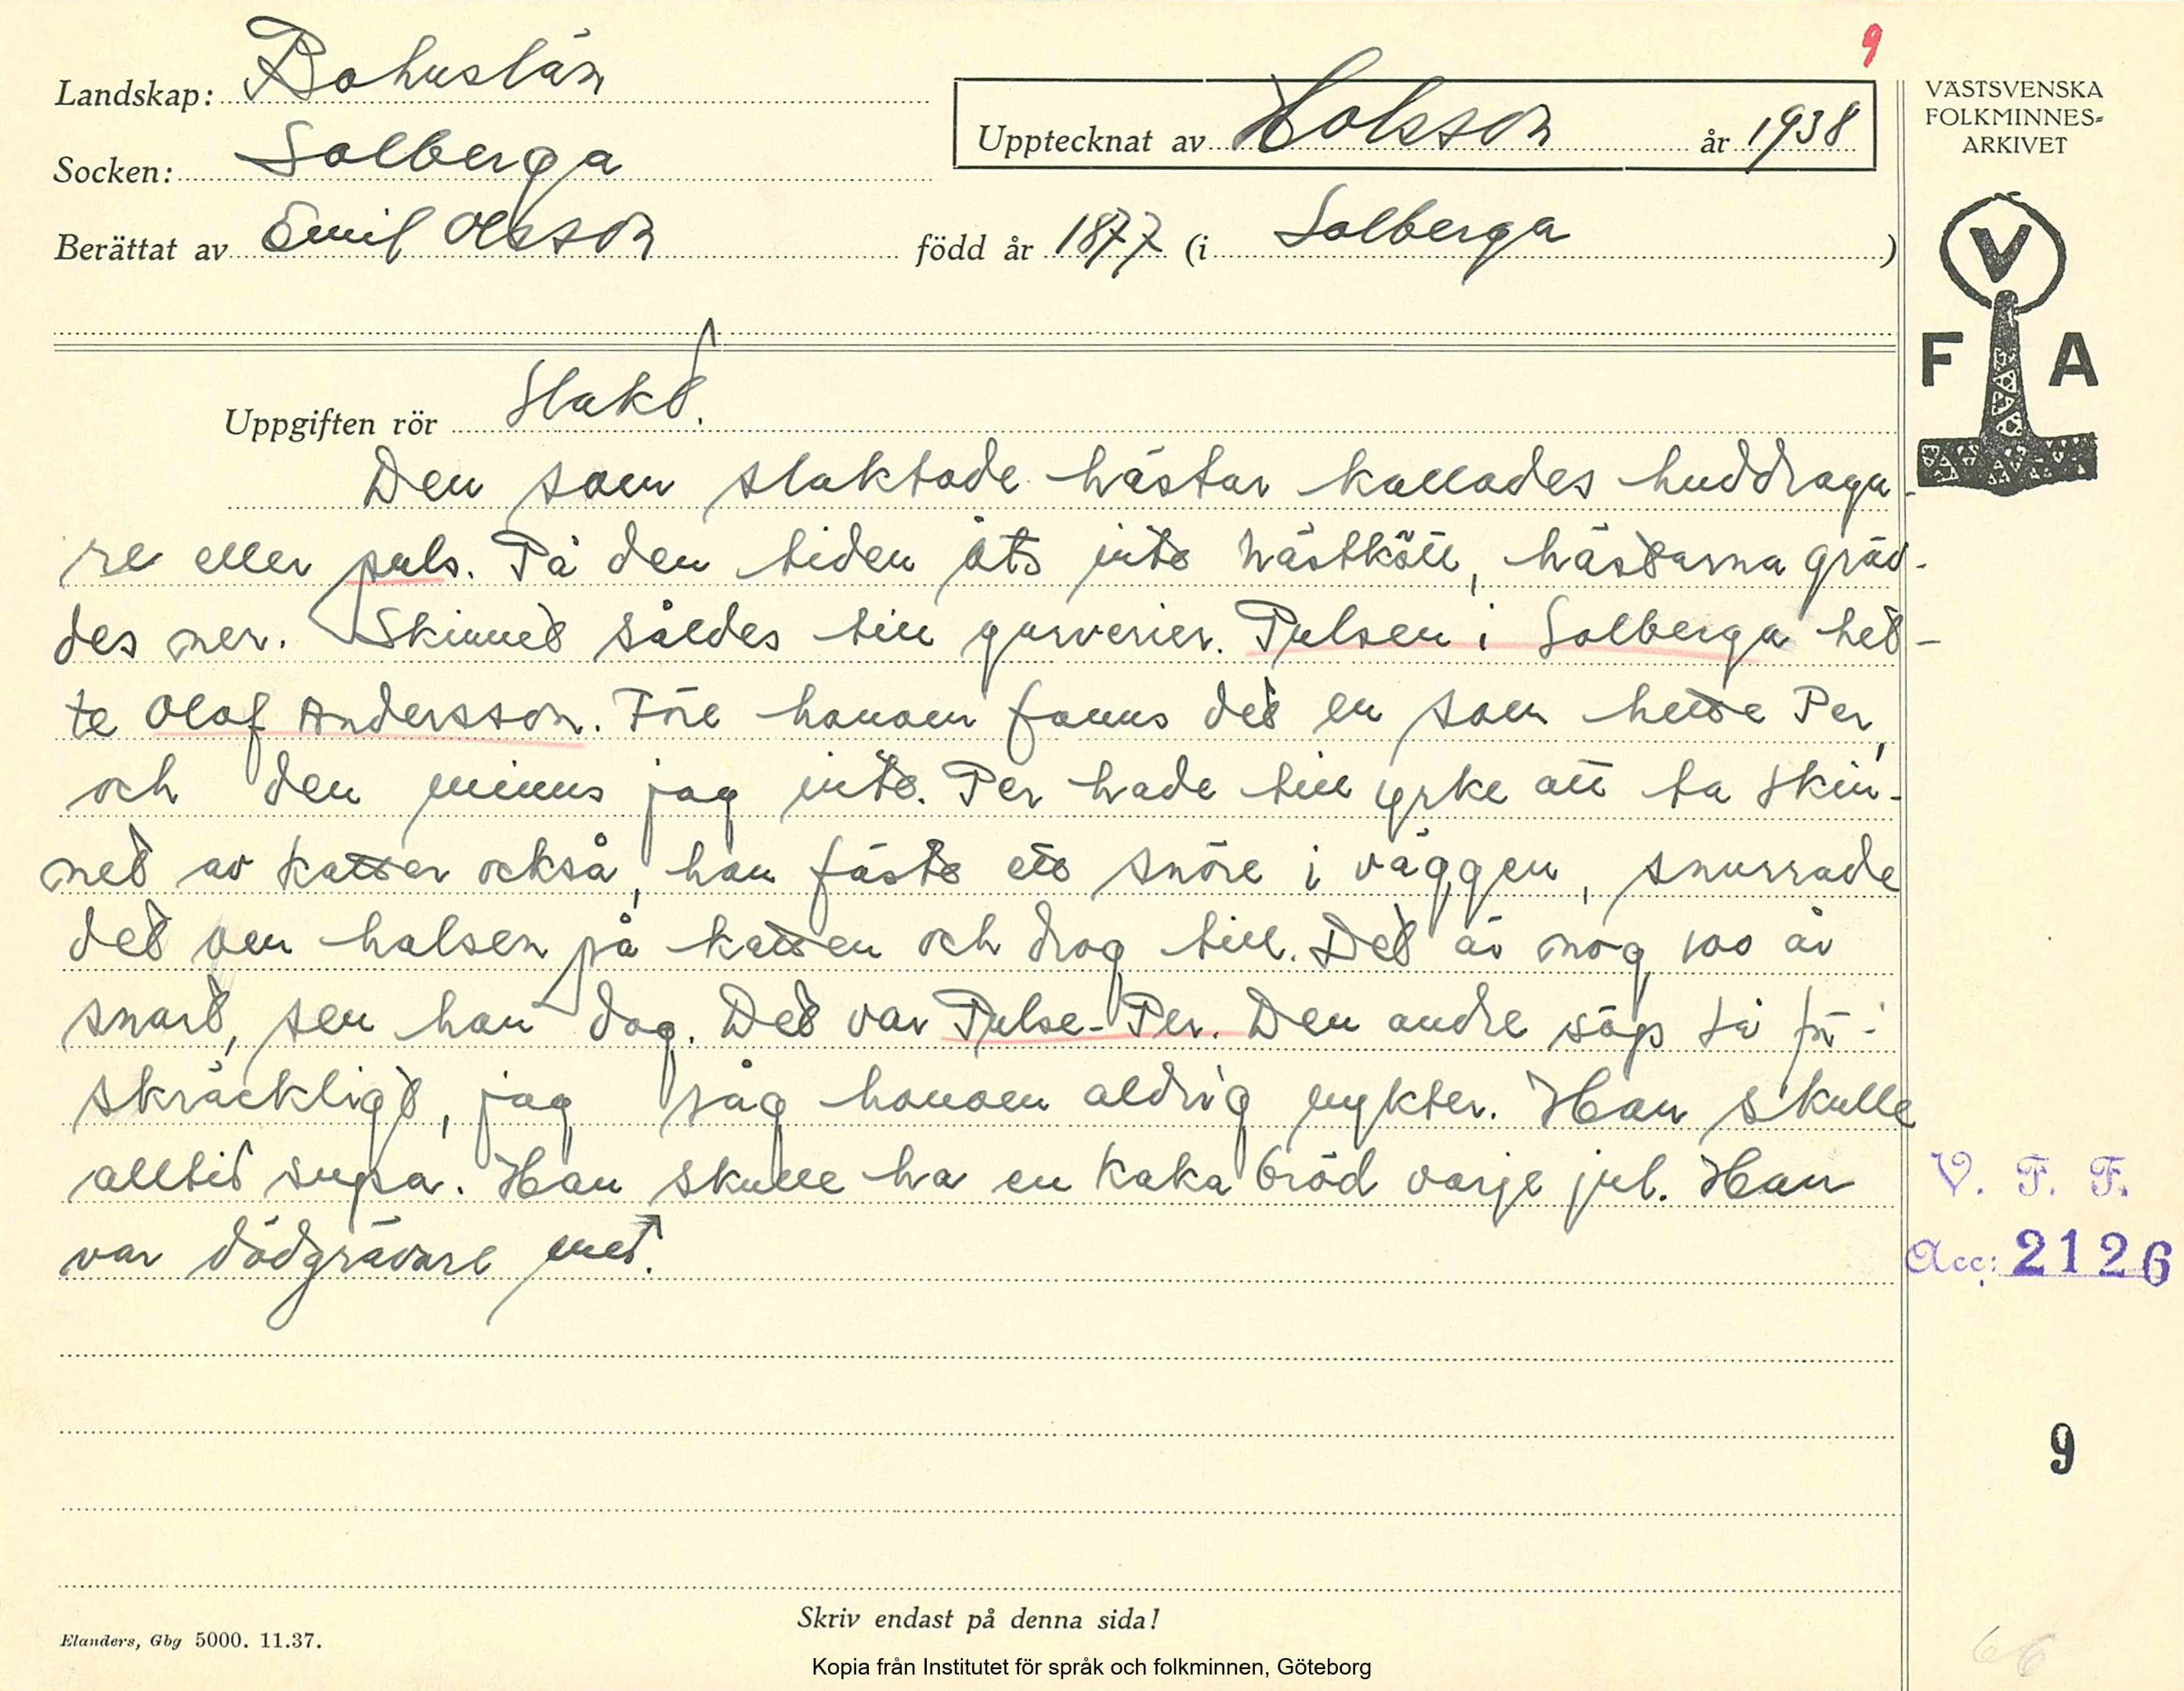 9
Landskap: Bohuslän
Socken: Solberga
Upptecknat av Holsson år 1938
Berättat av Emil Olsson född år 1877 (i Solberga)
VÄSTSVENSKA
FOLKMINNES-
ARKIVET
V
F A
Uppgiften rör Slakt.
Den som slaktade hästar kallades huddraga-
re eller puls. På den tiden åts inte hästkött, hästarna gräv-
des ner. Skinnet såldes till garverier. Pulsen i Solberga het-
te Olof Andersson. Före honom fanns det en som hette Per,
och den minns jag inte. Per hade till yrke att ta skin-
net av katter också, han fäste ett snöre i väggen, snurrade
det om halsen på katten och drog till. Det är nog 100 år
snart, sen han dog. Det var Pulse-Per. Den andre söp så för-
skräckligt, jag såg honom aldrig nykter. Han skulle
alltid supa. Han skulle ha en kaka bröd varje jul. Han
var dödgrävare med.
V. F. F.
Acc: 2126
9
Skriv endast på denna sida!
Elanders, Gbg 5000. 11.37.
66
Kopia från Institutet för språk och folkminnen, Göteborg